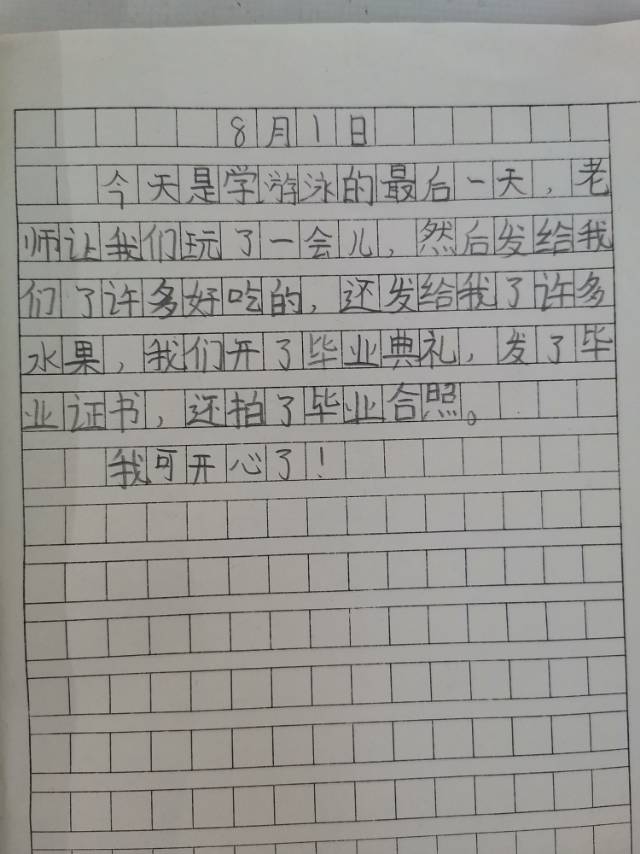 8月1日
今天是学游泳的最后一天，老
师让我们玩了一会儿，然后发给我
们了许多好吃的，还发给我了许多
水果，我们开了毕业典礼，发了毕
业证书，还拍了毕业合照。
我可开心了！